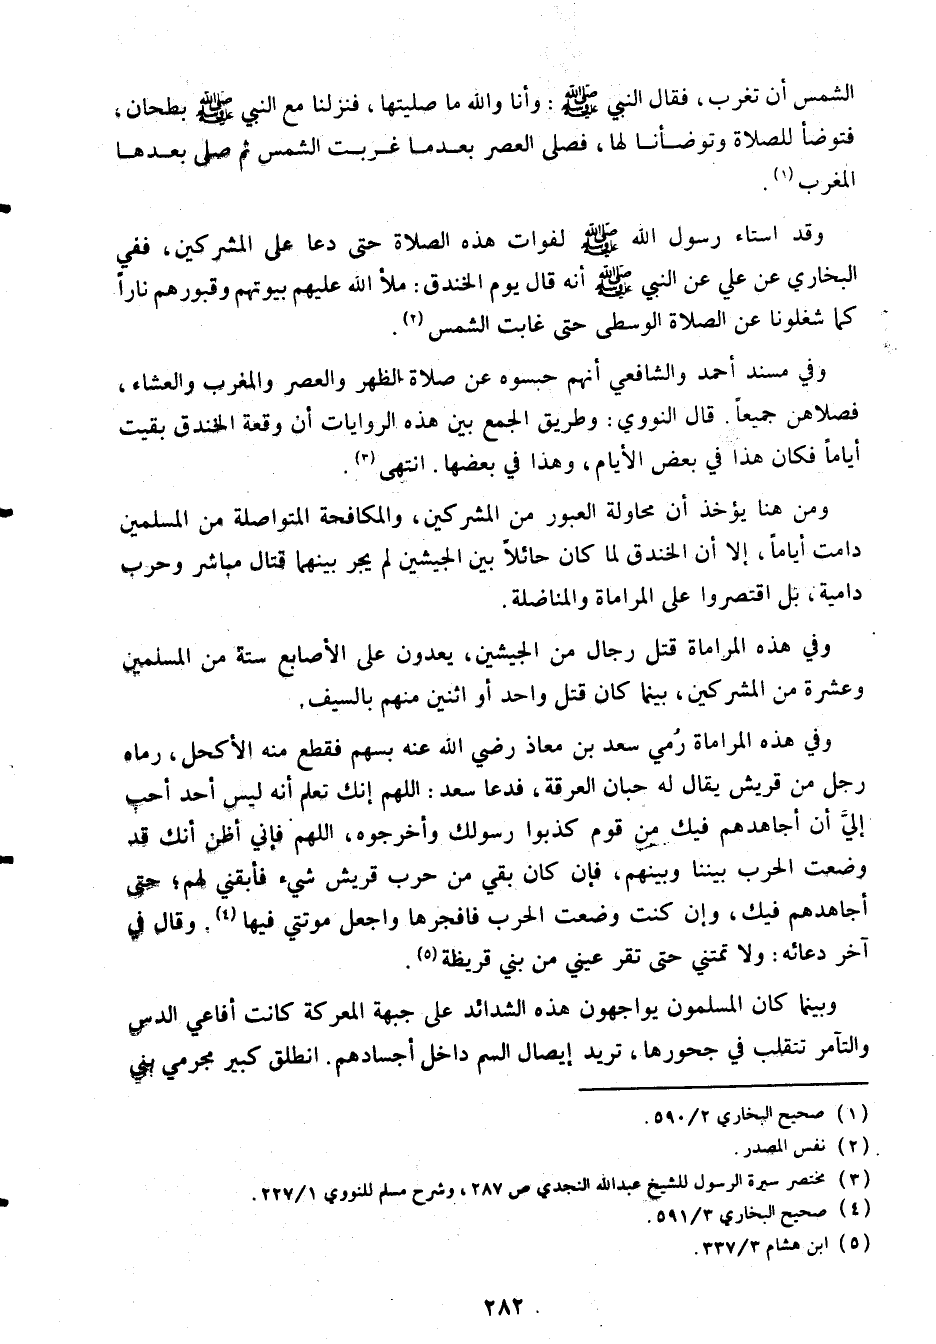 الشمس أن تغرب، فقال النبي ﷺ : وأنا والله ما صليتها، فنزلنا مع النبي ﷺ بطحان،
فتوضأ للصلاة وتوضأنا لها، فصلى العصر بعدما غربت الشمس ثم صلى بعدها
المغرب (١).
وقد استاء رسول الله ﷺ لفوات هذه الصلاة حتى دعا على المشركين، ففي
البخاري عن علي عن النبي ﷺ أنه قال يوم الخندق: ملأ الله عليهم بيوتهم وقبورهم ناراً
كما شغلونا عن الصلاة الوسطى حتى غابت الشمس (٢).
وفي مسند أحمد والشافعي أنهم حبسوه عن صلاة الظهر والعصر والمغرب والعشاء،
فصلاهن جميعاً. قال النووي: وطريق الجمع بين هذه الروايات أن وقعة الخندق بقيت
أياماً فكان هذا في بعض الأيام، وهذا في بعضها. انتهى (٣).
ومن هنا يؤخذ أن محاولة العبور من المشركين، والمكافحة المتواصلة من المسلمين
دامت أياماً، إلا أن الخندق لما كان حائلاً بين الجيشين لم يجر بينهما قتال مباشر وحرب
دامية، بل اقتصروا على المراماة والمناضلة.
وفي هذه المراماة قتل رجال من الجيشين، يعدون على الأصابع ستة من المسلمين
وعشرة من المشركين، بينما كان قتل واحد أو اثنين منهم بالسيف.
وفي هذه المراماة رُمي سعد بن معاذ رضي الله عنه بسهم فقطع منه الأكحل، رماه
رجل من قريش يقال له حبان العرقة، فدعا سعد: اللهم إنك تعلم أنه ليس أحد أحب
إليَّ أن أجاهدهم فيك من قوم كذبوا رسولك وأخرجوه، اللهم فإني أظن أنك قد
وضعت الحرب بيننا وبينهم، فإن كان بقي من حرب قريش شيء فأبقني لهم؛ حتى
أجاهدهم فيك، وإن كنت وضعت الحرب فافجرها واجعل موتتي فيها (٤). وقال في
آخر دعائه: ولا تمتني حتى تقر عيني من بني قريظة (٥).
وبينما كان المسلمون يواجهون هذه الشدائد على جبهة المعركة كانت أفاعي الدس
والتآمر تتقلب في جحورها، تريد إيصال السم داخل أجسادهم. انطلق كبير مجرمي بني
(١) صحيح البخاري ٥٩٠/٢.
(٢) نفس المصدر.
(٣) مختصر سيرة الرسول للشيخ عبدالله النجدي ص ٢٨٧، وشرح مسلم للنووي ٢٢٧/١.
(٤) صحيح البخاري ٥٩١/٣.
(٥) ابن هشام ٣٣٧/٣.
٢٨٢